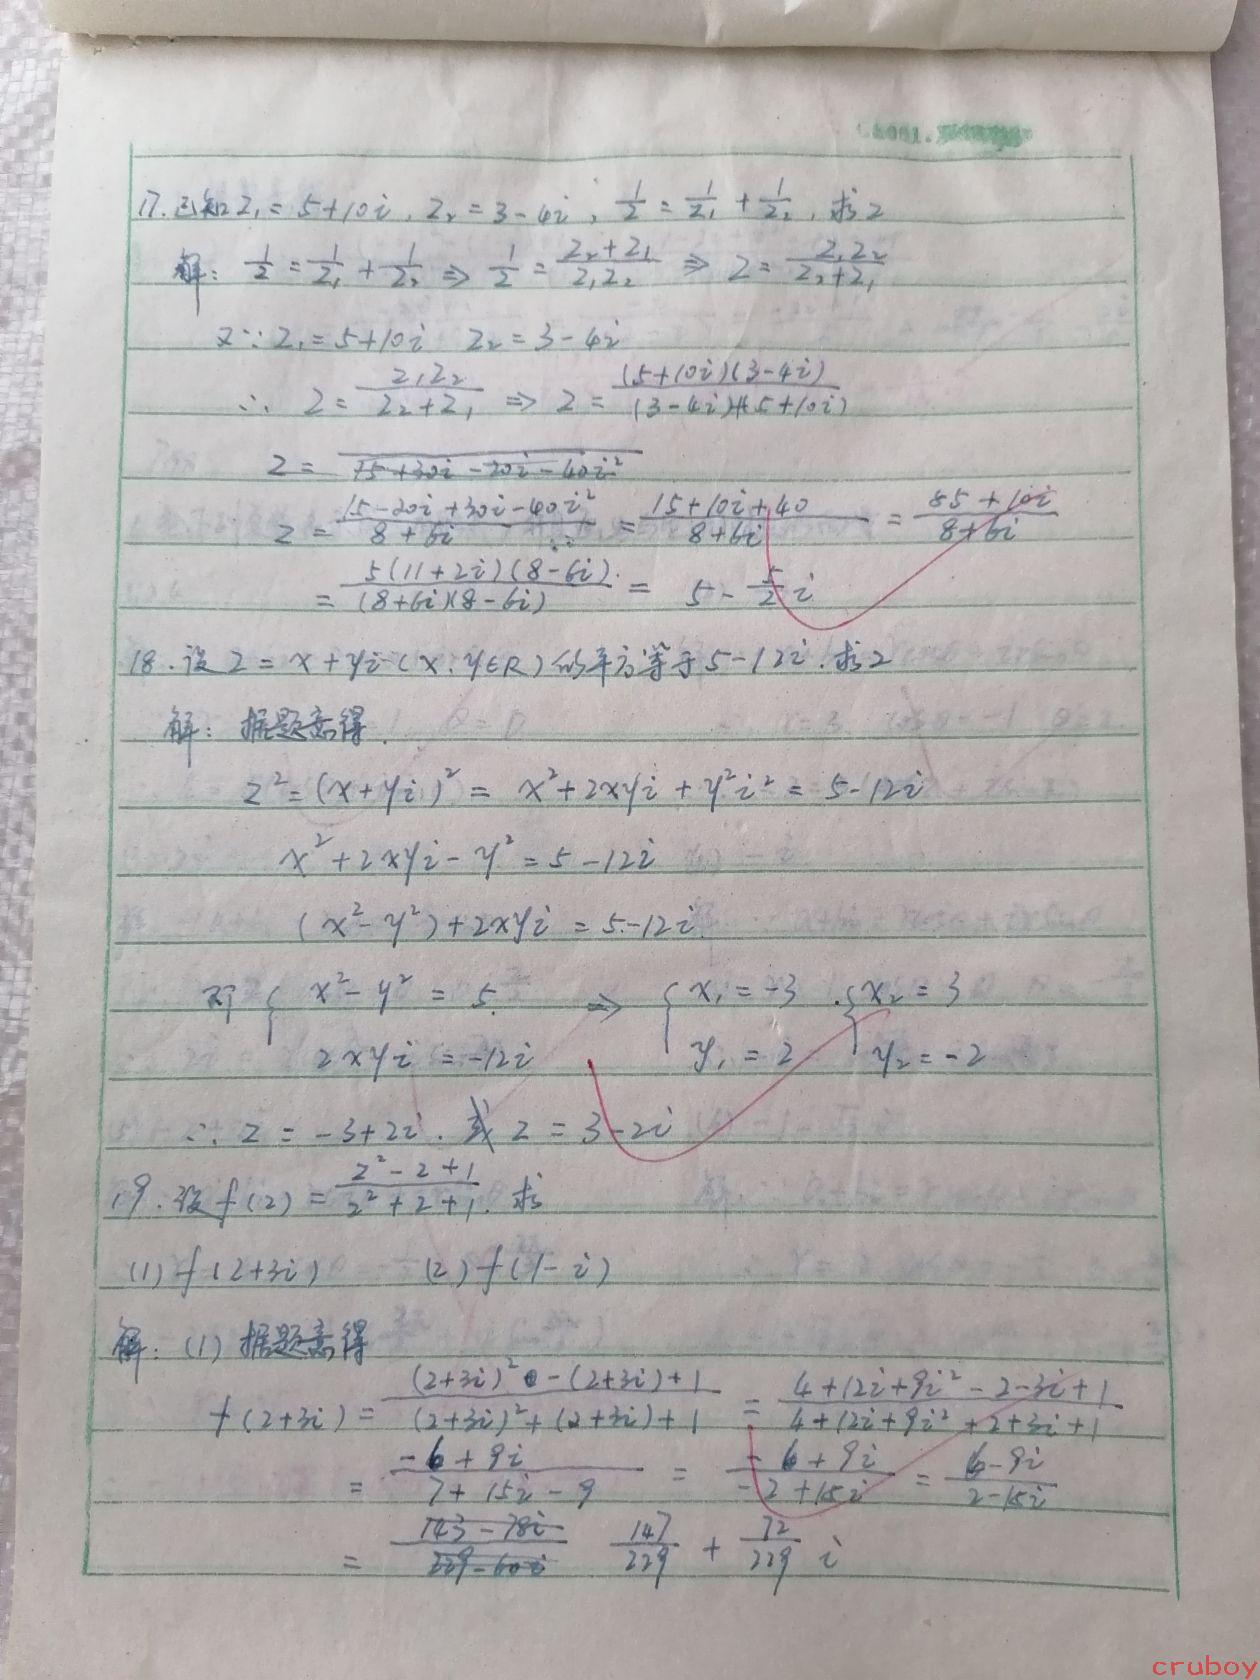 17. 已知 Z₁ = 5+10i , Z₂ = 3-4i , 1/Z = 1/Z₁ + 1/Z₂ , 求Z
解: 1/Z = 1/Z₁ + 1/Z₂ ⇒ 1/Z = (Z₂+Z₁)/(Z₁Z₂) ⇒ Z = (Z₁Z₂)/(Z₂+Z₁)
又∵ Z₁ = 5+10i Z₂ = 3-4i
∴ Z = (Z₁Z₂)/(Z₂+Z₁) ⇒ Z = ((5+10i)(3-4i))/((3-4i)+(5+10i))
Z = 15+30i-20i-40i²
Z = (15-20i+30i-40i²)/(8+6i) = (15+10i+40)/(8+6i) = (85+10i)/(8+6i)
= (5(11+2i)(8-6i))/((8+6i)(8-6i)) = 5 - 5/2 i
18. 设 Z = x+yi (x.y∈R) 的平方等于 5-12i . 求Z
解: 据题意得.
Z² = (x+yi)² = x²+2xyi+y²i² = 5-12i
x²+2xyi-y² = 5-12i
(x²-y²)+2xyi = 5-12i.
即 { x²-y² = 5 ⇒ { x₁ = -3 . { x₂ = 3
2xyi = -12i y₁ = 2 y₂ = -2
∴ Z = -3+2i . 或 Z = 3-2i
19. 设 f(Z) = (Z²-Z+1)/(Z²+Z+1) . 求
(1) f(2+3i) (2) f(1-i)
解: (1) 据题意得
f(2+3i) = ((2+3i)²-(2+3i)+1)/((2+3i)²+(2+3i)+1) = (4+12i+9i²-2-3i+1)/(4+12i+9i²+2+3i+1)
= (-6+9i)/(7+15i-9) = (-6+9i)/(-2+15i) = (6-9i)/(2-15i)
= (143-78i)/(229-60i) 147/229 + 72/229 i
cruboy